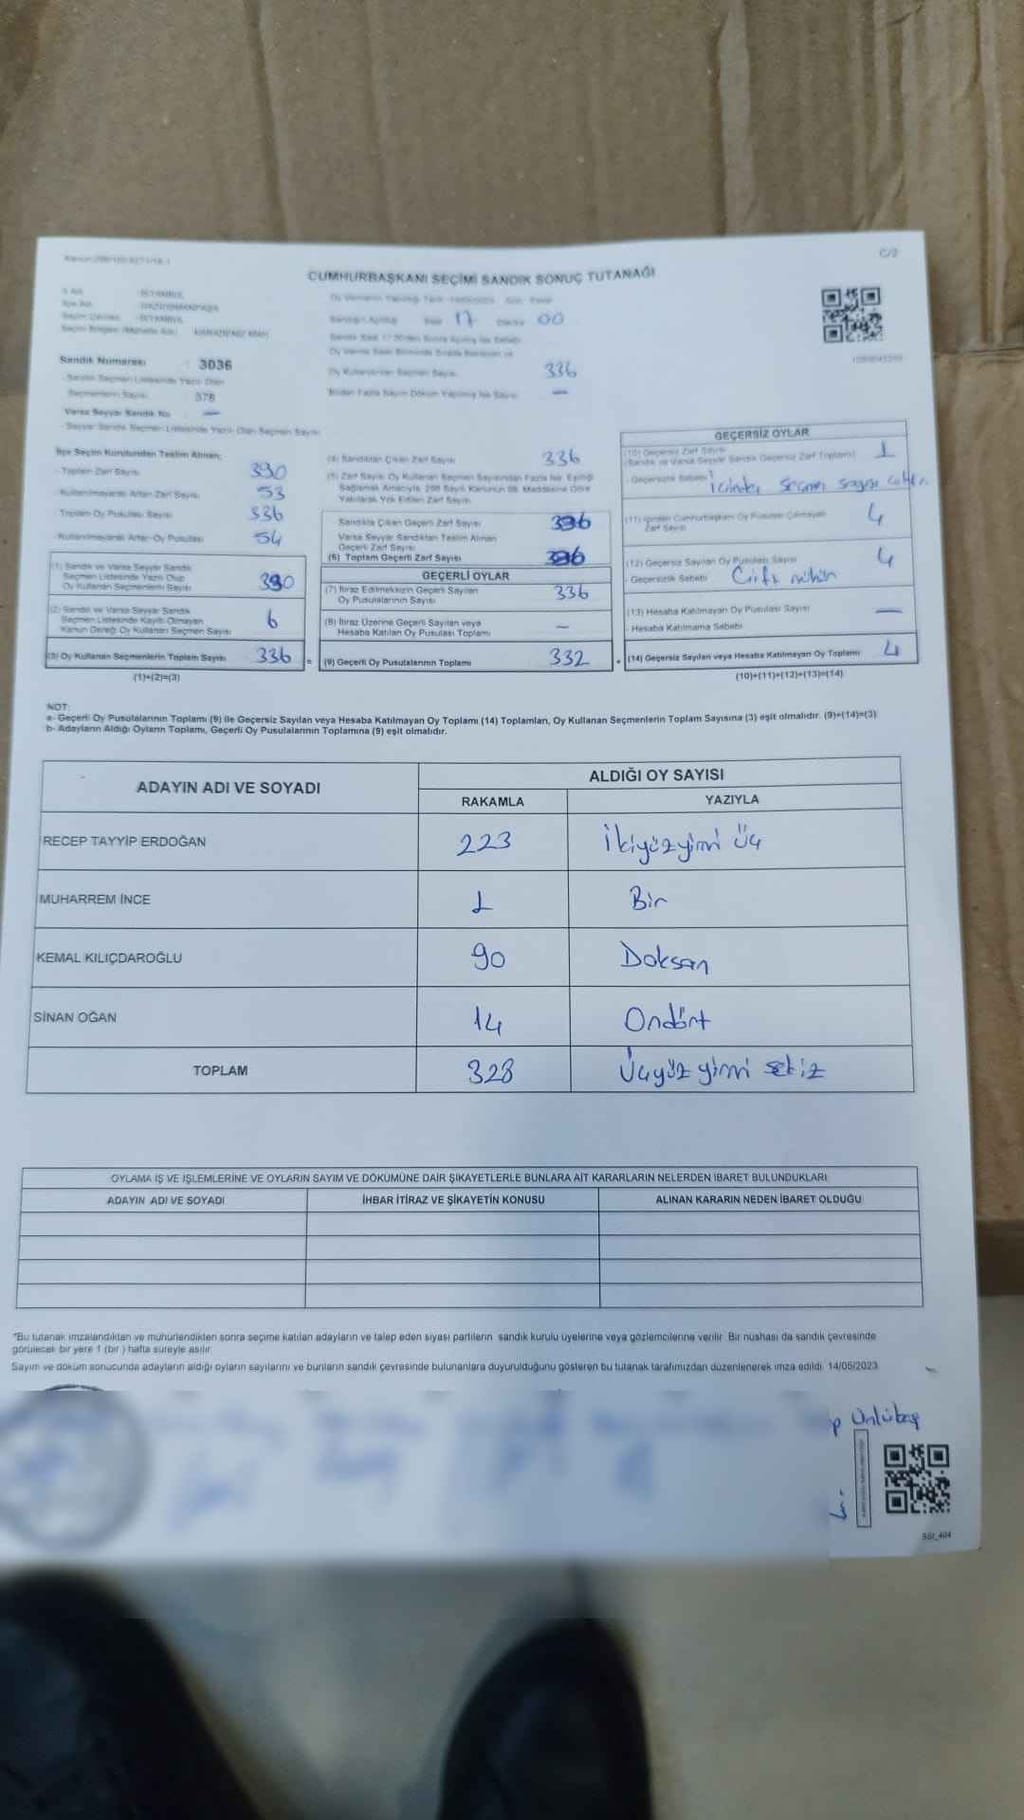 C/2
CUMHURBAŞKANI SEÇİMİ SANDIK SONUÇ TUTANAĞI
17 00
Sandık Numarası 3036
Sandık Seçmen Listesinde Yazılı Olan
Seçmenlerin Sayısı 378
Oy Kullanan Seçmen Sayısı 336
Birden Fazla Sayım Döküm Yapılmış İse Sayısı —
Varsa Seyyar Sandık No —
Seyyar Sandık Seçmen Listesinde Yazılı Olan Seçmen Sayısı
İlçe Seçim Kurulundan Teslim Alınan;
Toplam Zarf Sayısı 390
Kullanılmayarak Artan Zarf Sayısı 53
Toplam Oy Pusulası Sayısı 336
Kullanılmayarak Artan Oy Pusulası 54
(1) Sandık ve Varsa Seyyar Sandık
Seçmen Listesinde Yazılı Olup
Oy Kullanan Seçmenlerin Sayısı 330
(2) Sandık ve Varsa Seyyar Sandık
Seçmen Listesinde Kayıtlı Olmayan
Kanun Gereği Oy Kullanan Seçmen Sayısı 6
(3) Oy Kullanan Seçmenlerin Toplam Sayısı 336
(1)+(2)=(3)
(4) Sandıktan Çıkan Zarf Sayısı 336
(5) Zarf Sayısı Oy Kullanan Seçmen Sayısından Fazla İse Eşitliği
Sağlamak Amacıyla 298 Sayılı Kanunun 98. Maddesine Göre
Yakılarak Yok Edilen Zarf Sayısı
Sandıkta Çıkan Geçerli Zarf Sayısı 336
Varsa Seyyar Sandıktan Teslim Alınan
Geçerli Zarf Sayısı
(6) Toplam Geçerli Zarf Sayısı 336
GEÇERLİ OYLAR
(7) İtiraz Edilmeksizin Geçerli Sayılan
Oy Pusulalarının Sayısı 336
(8) İtiraz Üzerine Geçerli Sayılan veya
Hesaba Katılan Oy Pusulası Toplamı —
= (9) Geçerli Oy Pusulalarının Toplamı 332
GEÇERSİZ OYLAR
(10) Geçersiz Zarf Sayısı
(Sandık ve Varsa Seyyar Sandık Geçersiz Zarf Toplamı) 1
Geçersizlik Sebebi
(11) İçinden Cumhurbaşkanı Oy Pusulası Çıkmayan
Zarf Sayısı 4
(12) Geçersiz Sayılan Oy Pusulası Sayısı 4
Geçersizlik Sebebi Çift mühür
(13) Hesaba Katılmayan Oy Pusulası Sayısı —
Hesaba Katılmama Sebebi
+ (14) Geçersiz Sayılan veya Hesaba Katılmayan Oy Toplamı 4
(10)+(11)+(12)+(13)=(14)
NOT:
a- Geçerli Oy Pusulalarının Toplamı (9) ile Geçersiz Sayılan veya Hesaba Katılmayan Oy Toplamı (14) Toplamları, Oy Kullanan Seçmenlerin Toplam Sayısına (3) eşit olmalıdır. (9)+(14)=(3)
b- Adayların Aldığı Oyların Toplamı, Geçerli Oy Pusulalarının Toplamına (9) eşit olmalıdır.
ADAYIN ADI VE SOYADI ALDIĞI OY SAYISI
RAKAMLA YAZIYLA
RECEP TAYYİP ERDOĞAN 223 İkiyüzyirmi üç
MUHARREM İNCE 1 Bir
KEMAL KILIÇDAROĞLU 90 Doksan
SİNAN OĞAN 14 Ondört
TOPLAM 328 Üçyüz yirmi sekiz
OYLAMA İŞ VE İŞLEMLERİNE VE OYLARIN SAYIM VE DÖKÜMÜNE DAİR ŞİKAYETLERLE BUNLARA AİT KARARLARIN NELERDEN İBARET BULUNDUKLARI
ADAYIN ADI VE SOYADI İHBAR İTİRAZ VE ŞİKAYETİN KONUSU ALINAN KARARIN NEDEN İBARET OLDUĞU
*Bu tutanak imzalandıktan ve mühürlendikten sonra seçime katılan adayların ve talep eden siyasi partilerin sandık kurulu üyelerine veya gözlemcilerine verilir. Bir nüshası da sandık çevresinde
görülecek bir yere 1 (bir) hafta süreyle asılır.
Sayım ve döküm sonucunda adayların aldığı oyların sayılarını ve bunların sandık çevresinde bulunanlara duyurulduğunu gösteren bu tutanak tarafımızdan düzenlenerek imza edildi. 14/05/2023
p Ünlübaş